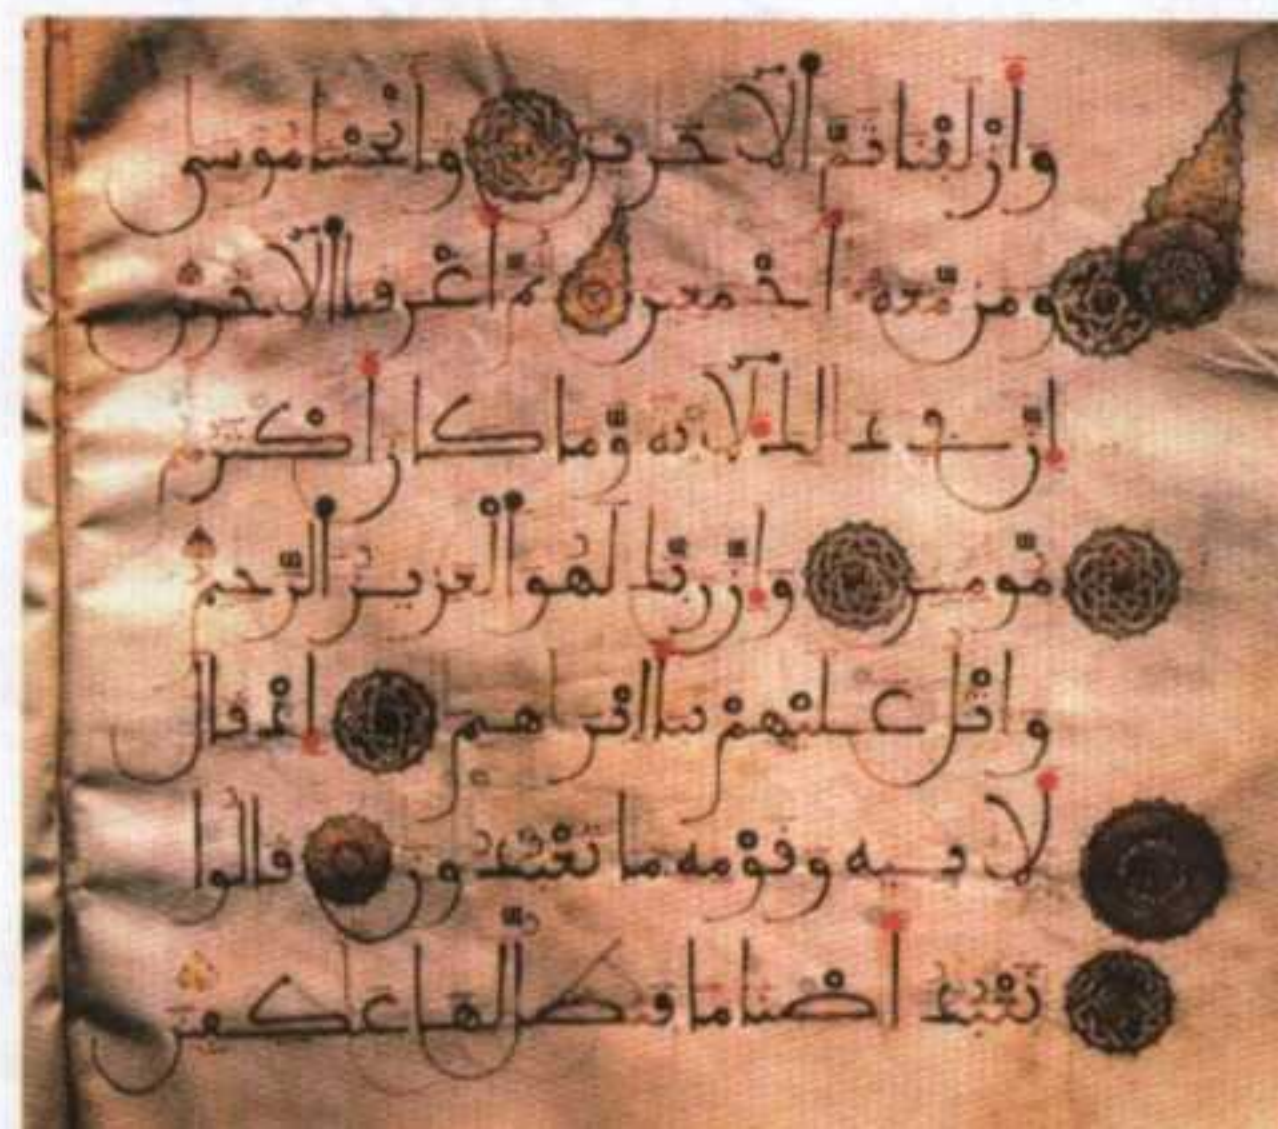 وأزلفنا ثم الاخرين وأنجينا موسى
ومن معه أجمعين ثم أغرقنا الاخرين
إن في ذلك لأية وما كان أكثرهم
مومنين وإن ربك لهو العزيز الرحيم
واتل عليهم نبأ ابراهيم إذ قال
لأبيه وقومه ما تعبدون قالوا
نعبد أصناما فنظل لها عكفين